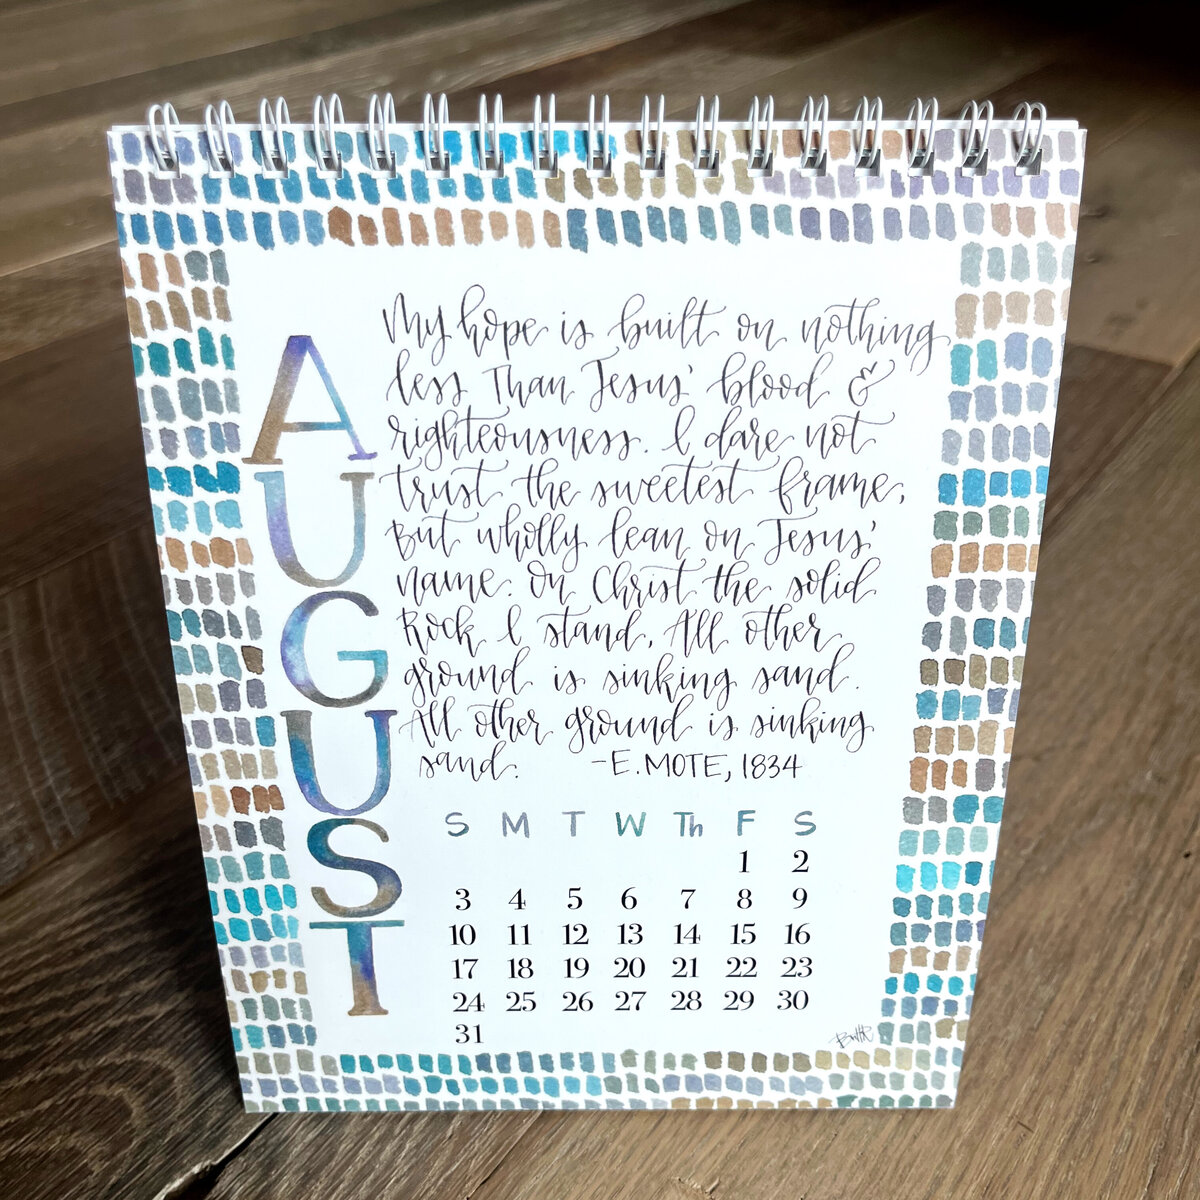 AUGUST
My hope is built on nothing
less Than Jesus' blood &
righteousness. I dare not
trust the sweetest frame,
But wholly lean on Jesus'
name. On Christ the solid
Rock I stand, All other
ground is sinking sand.
All other ground is sinking
sand. -E. MOTE, 1834
S M T W Th F S
1 2
3 4 5 6 7 8 9
10 11 12 13 14 15 16
17 18 19 20 21 22 23
24 25 26 27 28 29 30
31